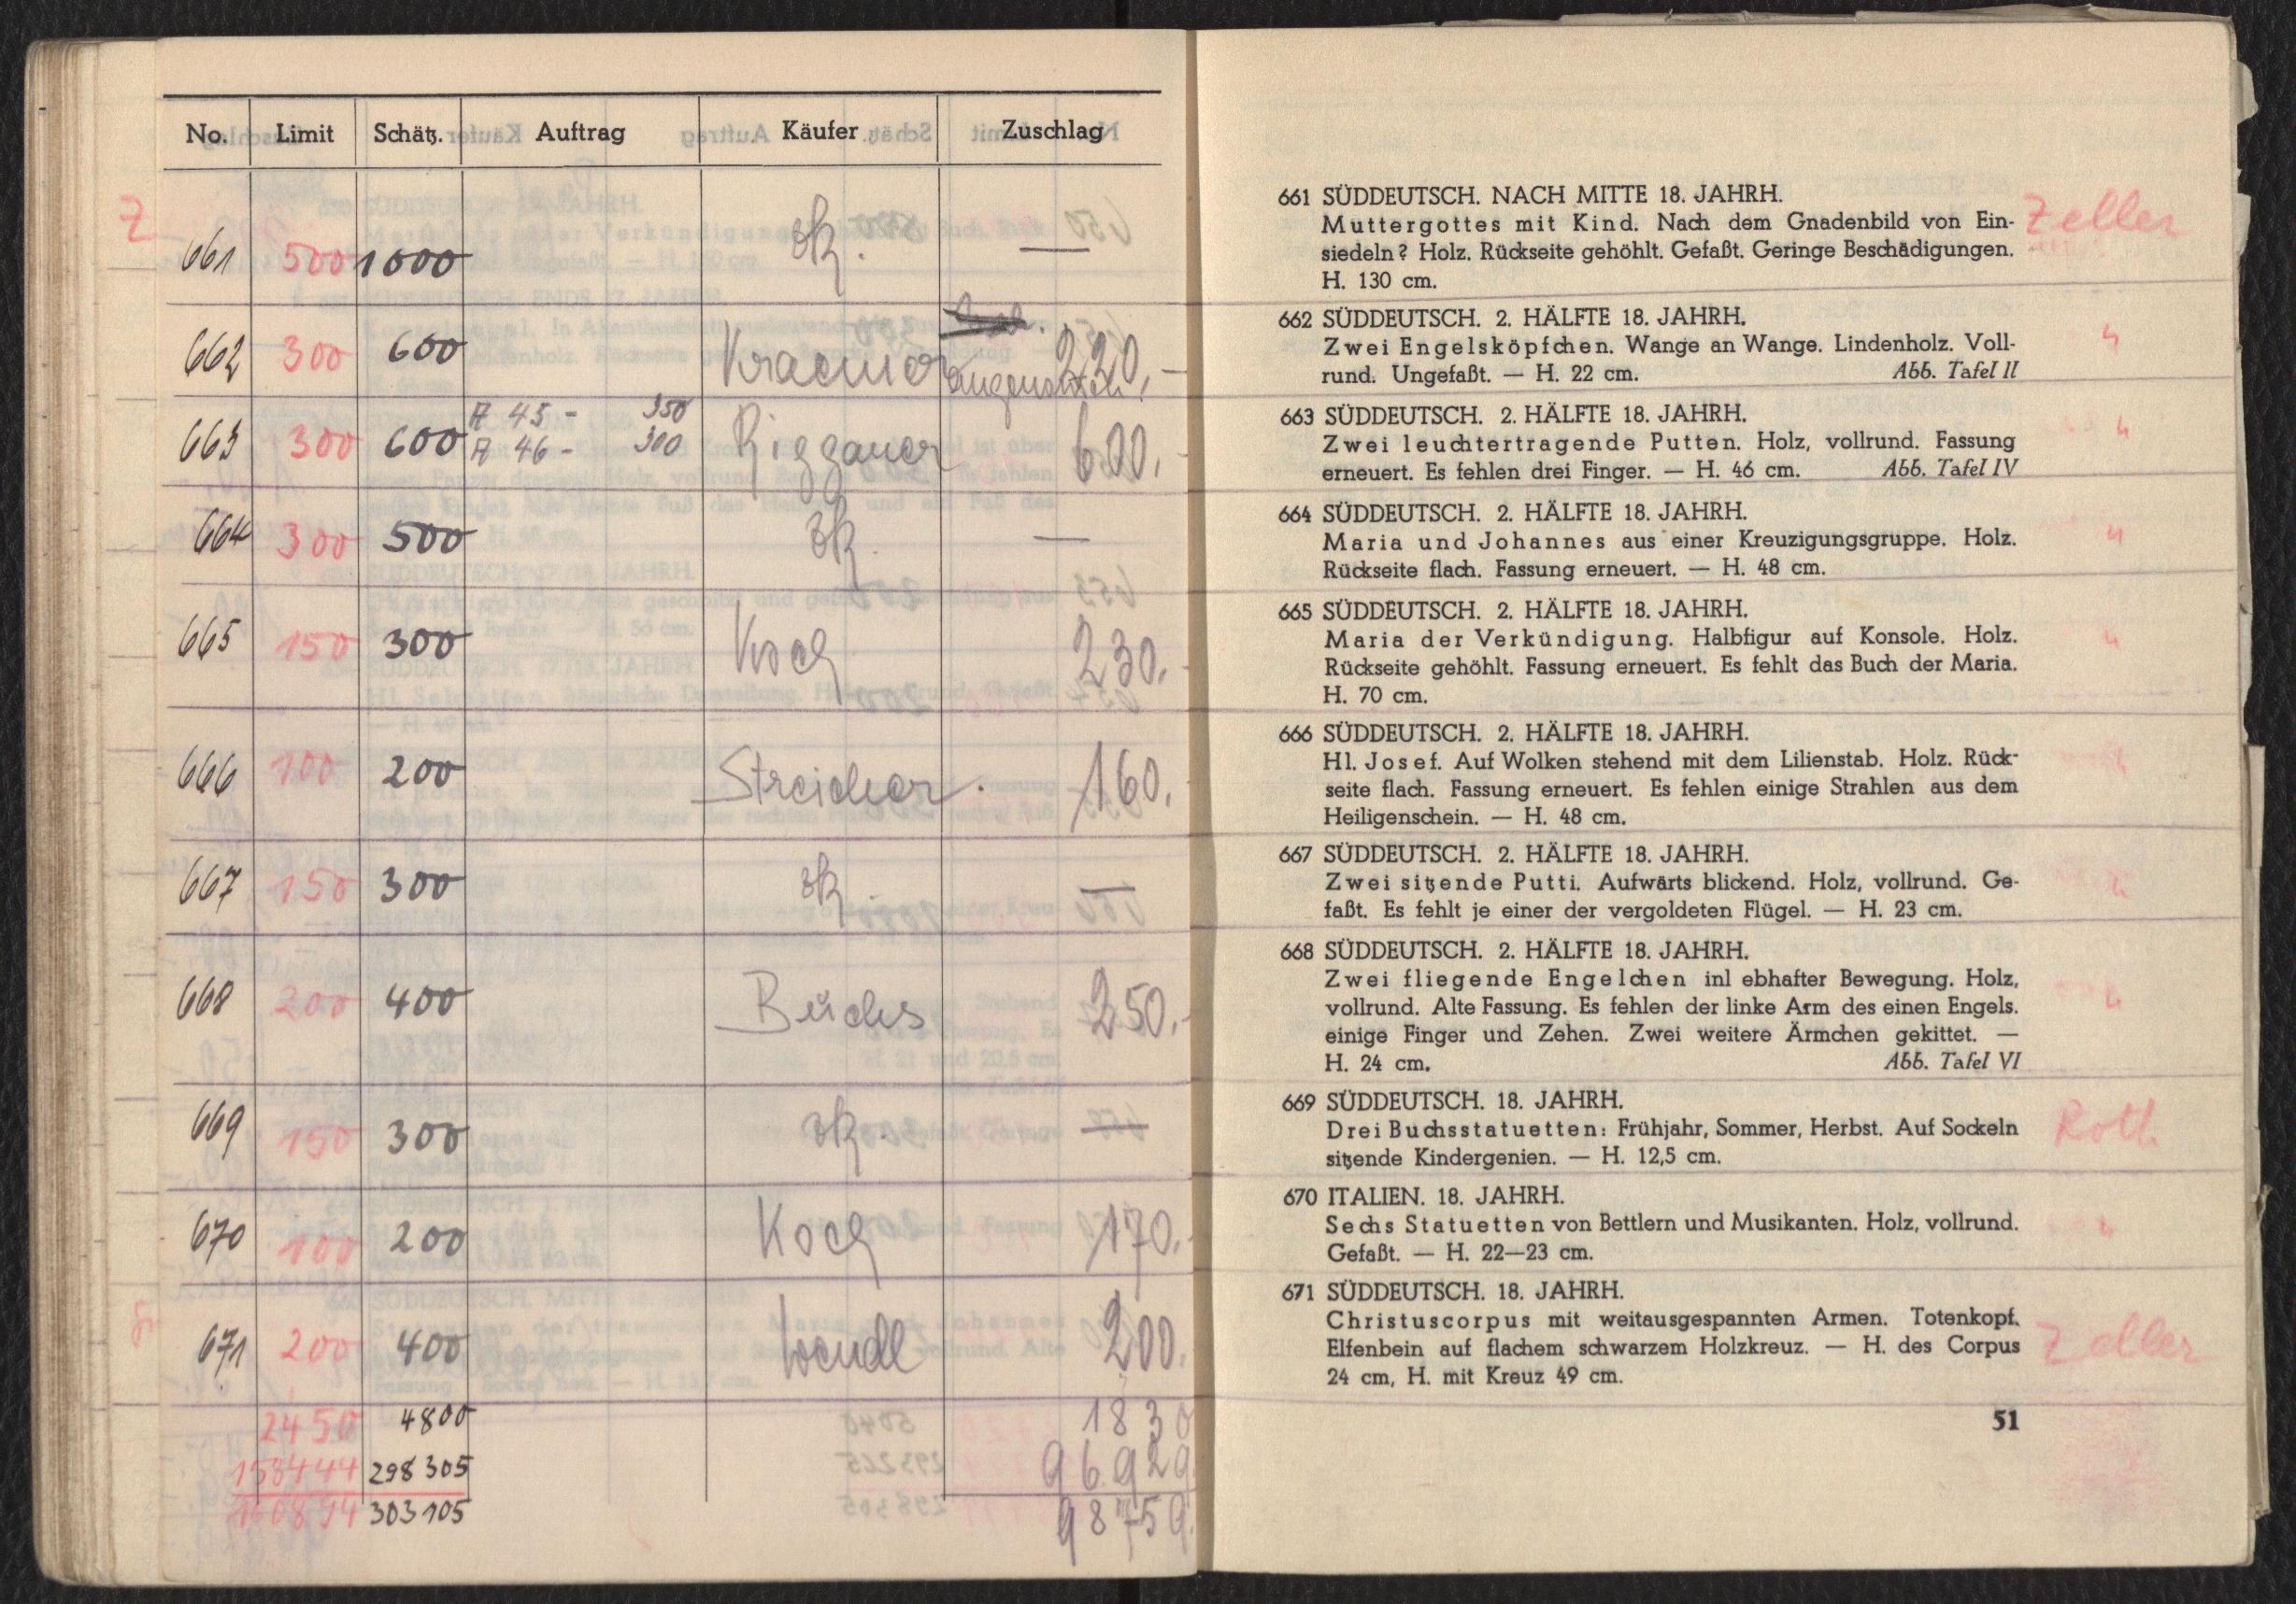 No. Limit Schätz. Auftrag Käufer Zuschlag
Z
661 500 1000 zk. —
662 300 600 Kraemer 220,-
663 300 600 A 45 - 350 Riggauer 600,-
A 46 - 300
664 300 500 zk. —
665 150 300 Koch 230,-
666 100 200 Streicher. 160,-
667 150 300 zk. —
668 200 400 Buchs 250,-
669 150 300 zk. —
670 100 200 Koch 170,-
671 200 400 Wendl 200,
2450 4800 1830
298305 96929
303105 98759.
661 SÜDDEUTSCH. NACH MITTE 18. JAHRH. Zeller
Muttergottes mit Kind. Nach dem Gnadenbild von Ein-
siedeln? Holz. Rückseite gehöhlt. Gefaßt. Geringe Beschädigungen.
H. 130 cm.
662 SÜDDEUTSCH. 2. HÄLFTE 18. JAHRH.
Zwei Engelsköpfchen. Wange an Wange. Lindenholz. Voll- "
rund. Ungefaßt. — H. 22 cm. Abb. Tafel II
663 SÜDDEUTSCH. 2. HÄLFTE 18. JAHRH.
Zwei leuchtertragende Putten. Holz, vollrund. Fassung "
erneuert. Es fehlen drei Finger. — H. 46 cm. Abb. Tafel IV
664 SÜDDEUTSCH. 2. HÄLFTE 18. JAHRH.
Maria und Johannes aus einer Kreuzigungsgruppe. Holz. "
Rückseite flach. Fassung erneuert. — H. 48 cm.
665 SÜDDEUTSCH. 2. HÄLFTE 18. JAHRH.
Maria der Verkündigung. Halbfigur auf Konsole. Holz. "
Rückseite gehöhlt. Fassung erneuert. Es fehlt das Buch der Maria.
H. 70 cm.
666 SÜDDEUTSCH. 2. HÄLFTE 18. JAHRH.
Hl. Josef. Auf Wolken stehend mit dem Lilienstab. Holz. Rück- "
seite flach. Fassung erneuert. Es fehlen einige Strahlen aus dem
Heiligenschein. — H. 48 cm.
667 SÜDDEUTSCH. 2. HÄLFTE 18. JAHRH.
Zwei sitzende Putti. Aufwärts blickend. Holz, vollrund. Ge- "
faßt. Es fehlt je einer der vergoldeten Flügel. — H. 23 cm.
668 SÜDDEUTSCH. 2. HÄLFTE 18. JAHRH.
Zwei fliegende Engelchen inl ebhafter Bewegung. Holz,
vollrund. Alte Fassung. Es fehlen der linke Arm des einen Engels. "
einige Finger und Zehen. Zwei weitere Ärmchen gekittet. —
H. 24 cm. Abb. Tafel VI
669 SÜDDEUTSCH. 18. JAHRH.
Drei Buchsstatuetten: Frühjahr, Sommer, Herbst. Auf Sockeln Roth
sitzende Kindergenien. — H. 12,5 cm.
670 ITALIEN. 18. JAHRH.
Sechs Statuetten von Bettlern und Musikanten. Holz, vollrund. "
Gefaßt. — H. 22—23 cm.
671 SÜDDEUTSCH. 18. JAHRH.
Christuscorpus mit weitausgespannten Armen. Totenkopf.
Elfenbein auf flachem schwarzem Holzkreuz. — H. des Corpus Zeller
24 cm, H. mit Kreuz 49 cm.
51